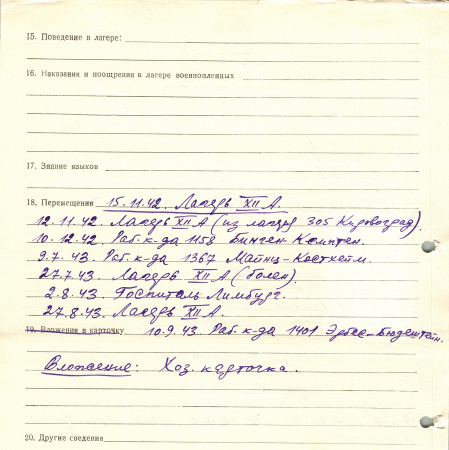 15. Поведение в лагере:
16. Наказания и поощрения в лагере военнопленных
17. Знание языков
18. Перемещения 15.11.42. Лагерь XII А.
12.11.42. Лагерь XII А (из лагеря 305 Кировоград).
10.12.42. Раб. к-да 1158 Бинген Кемптен.
9.7.43. Раб. к-да 1367 Майнц-Костхейм.
27.7.43. Лагерь XII А (болен).
2.8.43. Госпиталь Лимбург.
27.8.43. Лагерь XII А.
19. Вложения в карточку 10.9.43. Раб. к-да 1401 Эрбес-Бюдесгейм.
Вложение: Хоз. карточка.
20. Другие сведения